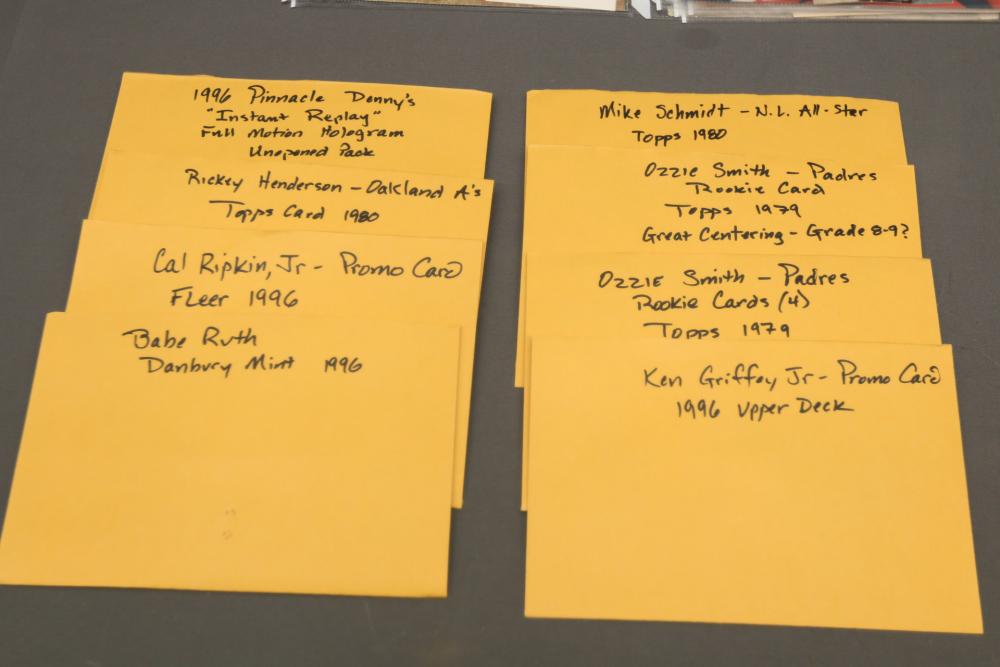 1996 Pinnacle Denny's
"Instant Replay"
Full Motion Hologram
Unopened Pack
Rickey Henderson - Oakland A's
Topps Card 1980
Cal Ripkin, Jr - Promo Card
FLeer 1996
Babe Ruth
Danbury Mint 1996
Mike Schmidt - N.L. All-Star
Topps 1980
Ozzie Smith - Padres
Rookie Card
Topps 1979
Great Centering - Grade 8-9?
Ozzie Smith - Padres
Rookie Cards (4)
Topps 1979
Ken Griffey Jr - Promo Card
1996 Upper Deck